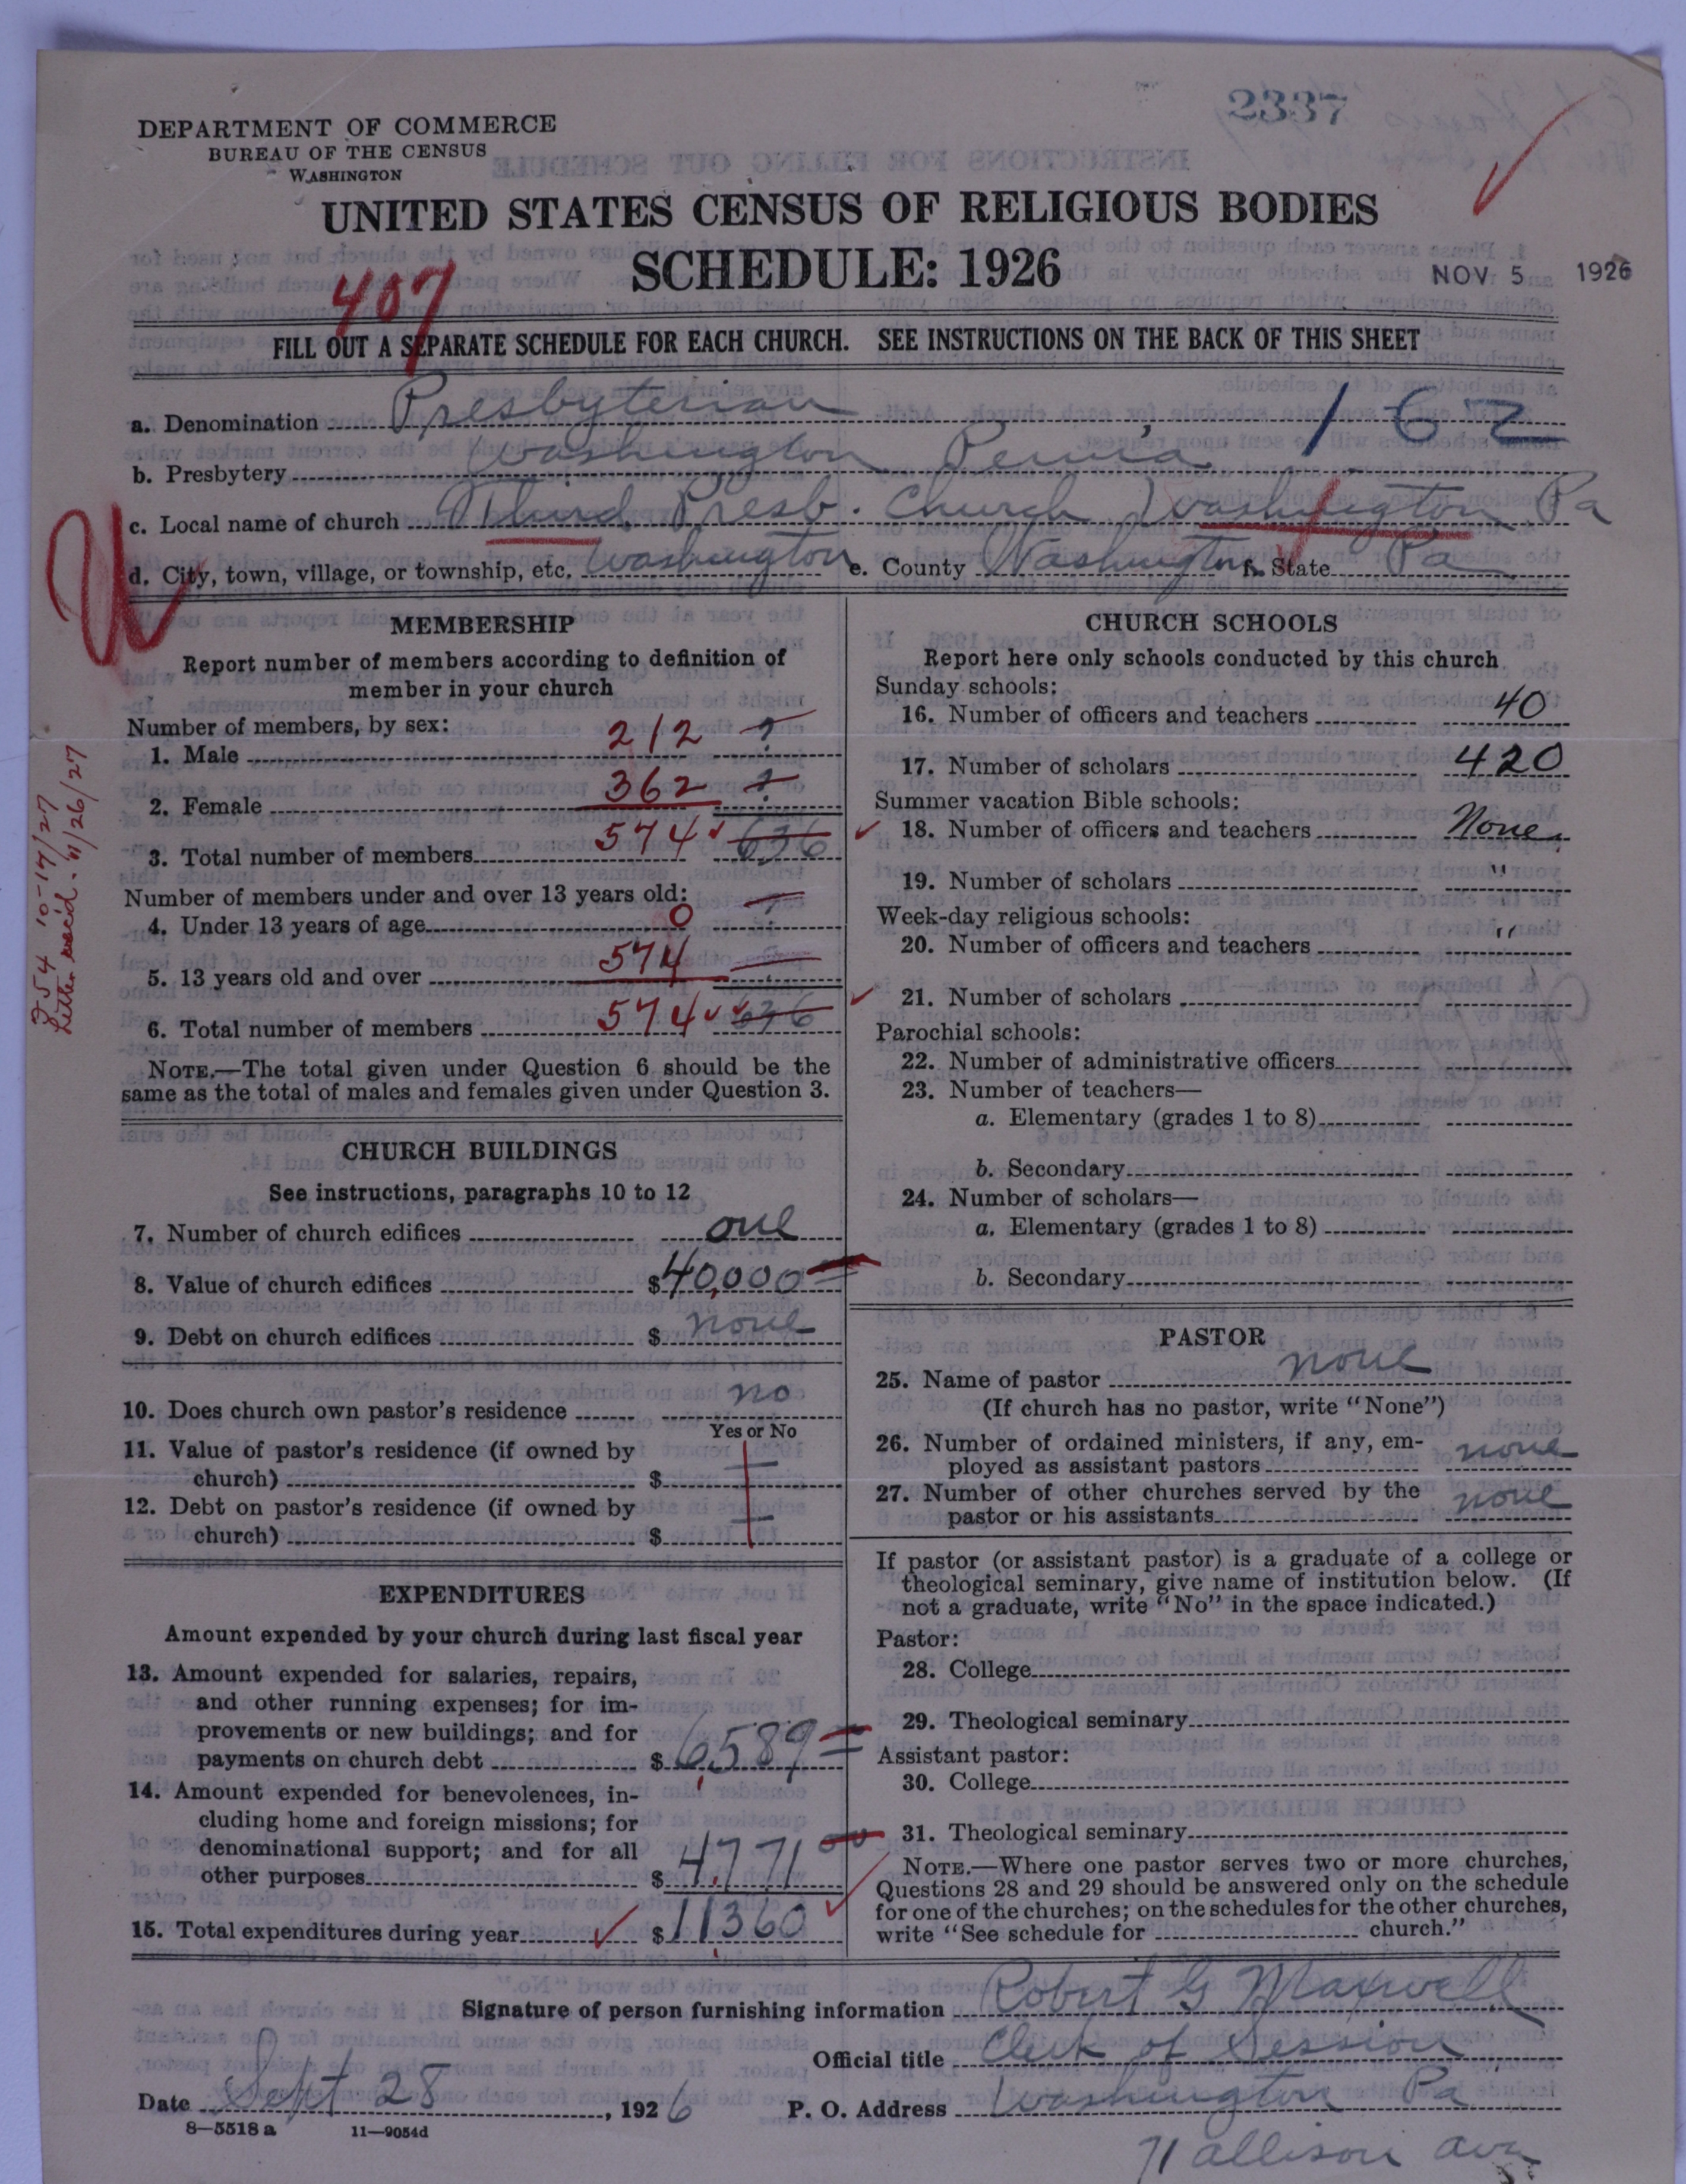 2337
DEPARTMENT OF COMMERCE
BUREAU OF THE CENSUS
WASHINGTON
UNITED STATES CENSUS OF RELIGIOUS BODIES
SCHEDULE: 1926
NOV 5 1926
407
FILL OUT A SEPARATE SCHEDULE FOR EACH CHURCH. SEE INSTRUCTIONS ON THE BACK OF THIS SHEET
a. Denomination Presbyterian 162
b. Presbytery Washington Penna
c. Local name of church Third Presb. Church Washington Pa
d. City, town, village, or township, etc. Washington e. County Washington f. State Pa
MEMBERSHIP
Report number of members according to definition of
member in your church
Number of members, by sex:
1. Male 212 ?
2. Female 362 ?
3. Total number of members 574 636
Number of members under and over 13 years old:
4. Under 13 years of age 0
5. 13 years old and over 574
6. Total number of members 574 636
NOTE.—The total given under Question 6 should be the
same as the total of males and females given under Question 3.
10-17/27
Letter 11/26/27
CHURCH BUILDINGS
See instructions, paragraphs 10 to 12
7. Number of church edifices one
8. Value of church edifices $40,000
9. Debt on church edifices $ none
10. Does church own pastor's residence no
Yes or No
11. Value of pastor's residence (if owned by
church) $
12. Debt on pastor's residence (if owned by
church) $
EXPENDITURES
Amount expended by your church during last fiscal year
13. Amount expended for salaries, repairs,
and other running expenses; for im-
provements or new buildings; and for
payments on church debt $ 6,589
14. Amount expended for benevolences, in-
cluding home and foreign missions; for
denominational support; and for all
other purposes $ 4,771
15. Total expenditures during year $ 11,360
CHURCH SCHOOLS
Report here only schools conducted by this church
Sunday schools:
16. Number of officers and teachers 40
17. Number of scholars 420
Summer vacation Bible schools:
18. Number of officers and teachers None
19. Number of scholars "
Week-day religious schools:
20. Number of officers and teachers "
21. Number of scholars
Parochial schools:
22. Number of administrative officers
23. Number of teachers—
a. Elementary (grades 1 to 8)
b. Secondary
24. Number of scholars—
a. Elementary (grades 1 to 8)
b. Secondary
PASTOR
25. Name of pastor none
(If church has no pastor, write "None")
26. Number of ordained ministers, if any, em-
ployed as assistant pastors none
27. Number of other churches served by the
pastor or his assistants none
If pastor (or assistant pastor) is a graduate of a college or
theological seminary, give name of institution below. (If
not a graduate, write "No" in the space indicated.)
Pastor:
28. College
29. Theological seminary
Assistant pastor:
30. College
31. Theological seminary
NOTE.—Where one pastor serves two or more churches,
Questions 28 and 29 should be answered only on the schedule
for one of the churches; on the schedules for the other churches,
write "See schedule for church."
Signature of person furnishing information Robert G Maxwell
Official title Clerk of Session
Date Sept 28, 1926 P. O. Address Washington Pa
8—5518 a 11—9054d
71 Allison Ave